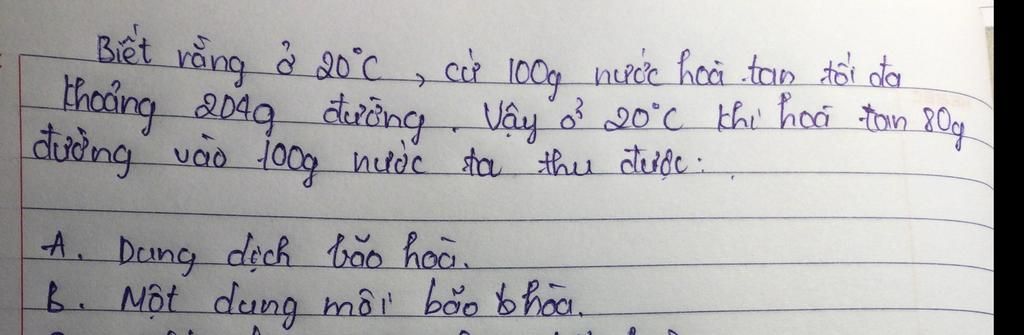 Biết rằng ở 20°C, cứ 100g nước hoà tan tối đa
khoảng 204g đường. Vậy ở 20°C khi hoà tan 80g
đường vào 100g nước ta thu được:
A. Dung dịch bão hoà.
B. Một dung môi bão hoà.